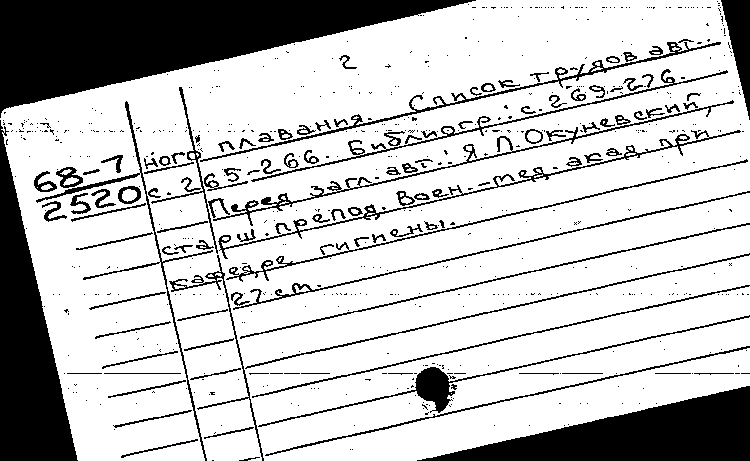 2
ного плавания. Список трудов авт.:
68-7 с. 265-266. Библиогр.: с. 269-276.
2520 Перед загл. авт.: Я. Л. Окуневский,
старш. препод. Воен.-мед. акад. при
кафедре гигиены.
27 см.